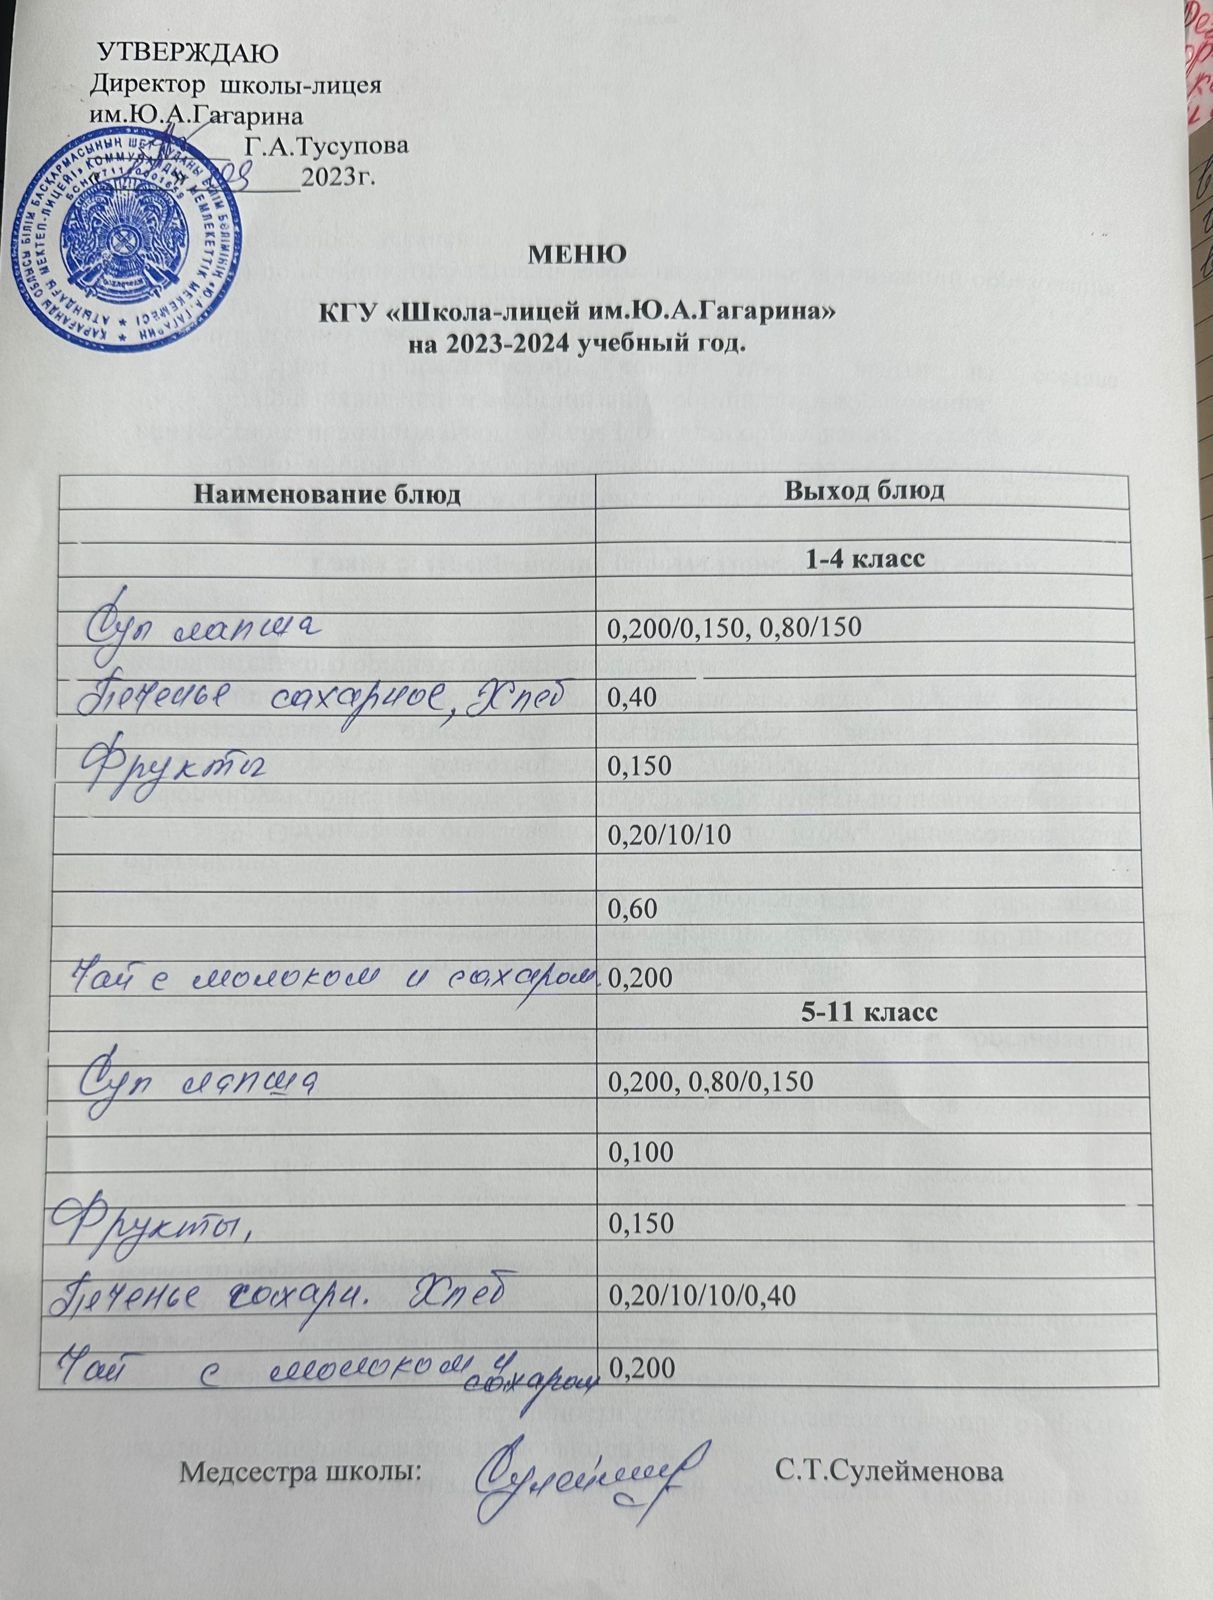 УТВЕРЖДАЮ
Директор школы-лицея
им.Ю.А.Гагарина
Г.А.Тусупова
09 2023г.
МЕНЮ
КГУ «Школа-лицей им.Ю.А.Гагарина»
на 2023-2024 учебный год.
Наименование блюд Выход блюд
1-4 класс
Суп лапша 0,200/0,150, 0,80/150
Печенье сахарное, Хлеб 0,40
Фрукты 0,150
0,20/10/10
0,60
Чай с молоком и сахаром. 0,200
5-11 класс
Суп лапша 0,200, 0,80/0,150
0,100
Фрукты, 0,150
Печенье сахарн. Хлеб 0,20/10/10/0,40
Чай с молоком и сахаром 0,200
Медсестра школы: С.Т.Сулейменова